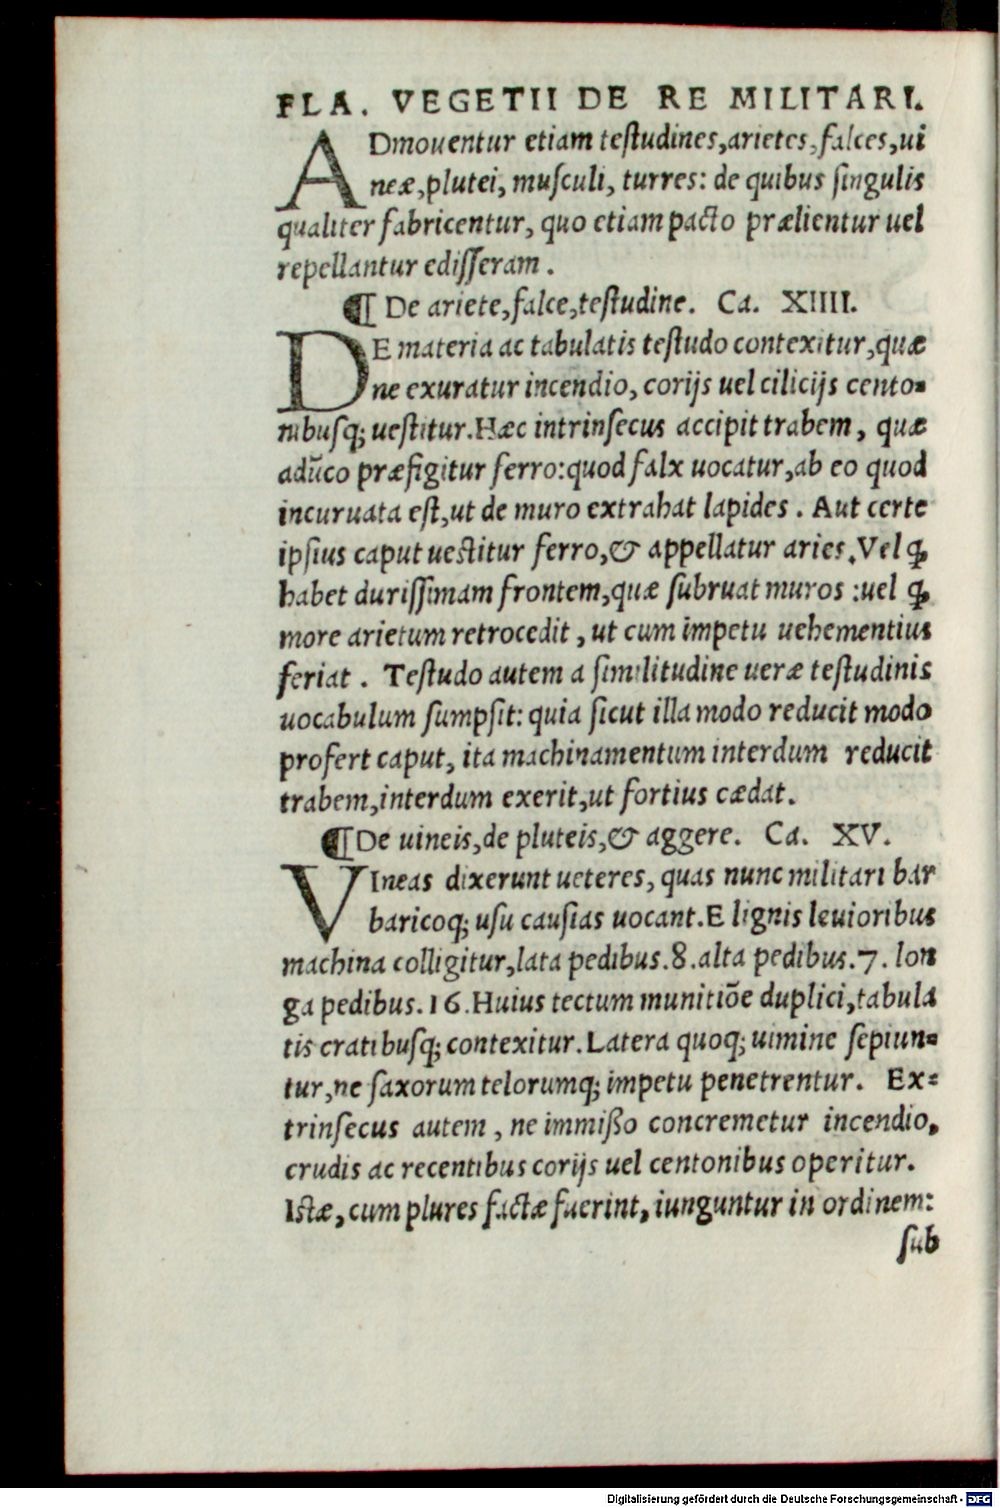 FLA. VEGETII DE RE MILITARI.
ADmouentur etiam teſtudines,arietes,falces,ui
neæ,plutei, muſculi, turres: de quibus ſingulis
qualiter fabricentur, quo etiam pacto prælientur uel
repellantur ediſſeram .
¶ De ariete,falce,teſtudine. Ca. XIIII.
DE materia ac tabulatis teſtudo contexitur,quæ
ne exuratur incendio, corijs uel cilicijs cento-
nibuſq; ueſtitur.Hæc intrinſecus accipit trabem, quæ
adūco præfigitur ferro:quod falx uocatur,ab eo quod
incuruata eſt,ut de muro extrahat lapides . Aut certe
ipſius caput ueſtitur ferro,& appellatur aries.Vel ꝙ
habet duriſſimam frontem,quæ ſubruat muros :uel ꝙ
more arietum retrocedit , ut cum impetu uehementius
feriat . Teſtudo autem a ſimilitudine ueræ teſtudinis
uocabulum ſumpſit: quia ſicut illa modo reducit modo
profert caput, ita machinamentum interdum reducit
trabem,interdum exerit,ut fortius cædat.
¶De uineis,de pluteis,& aggere. Ca. XV.
VIneas dixerunt ueteres, quas nunc militari bar
baricoq; uſu cauſias uocant.E lignis leuioribus
machina colligitur,lata pedibus.8.alta pedibus.7. lon
ga pedibus.16.Huius tectum munitiōe duplici,tabula
tis cratibuſq; contexitur.Latera quoq; uimine ſepiun-
tur,ne ſaxorum telorumq; impetu penetrentur. Ex-
trinſecus autem , ne immiſſo concremetur incendio,
crudis ac recentibus corijs uel centonibus operitur.
Iſtæ, cum plures factæ fuerint, iunguntur in ordinem:
ſub
Digitalisierung gefördert durch die Deutsche Forschungsgemeinschaft - DFG